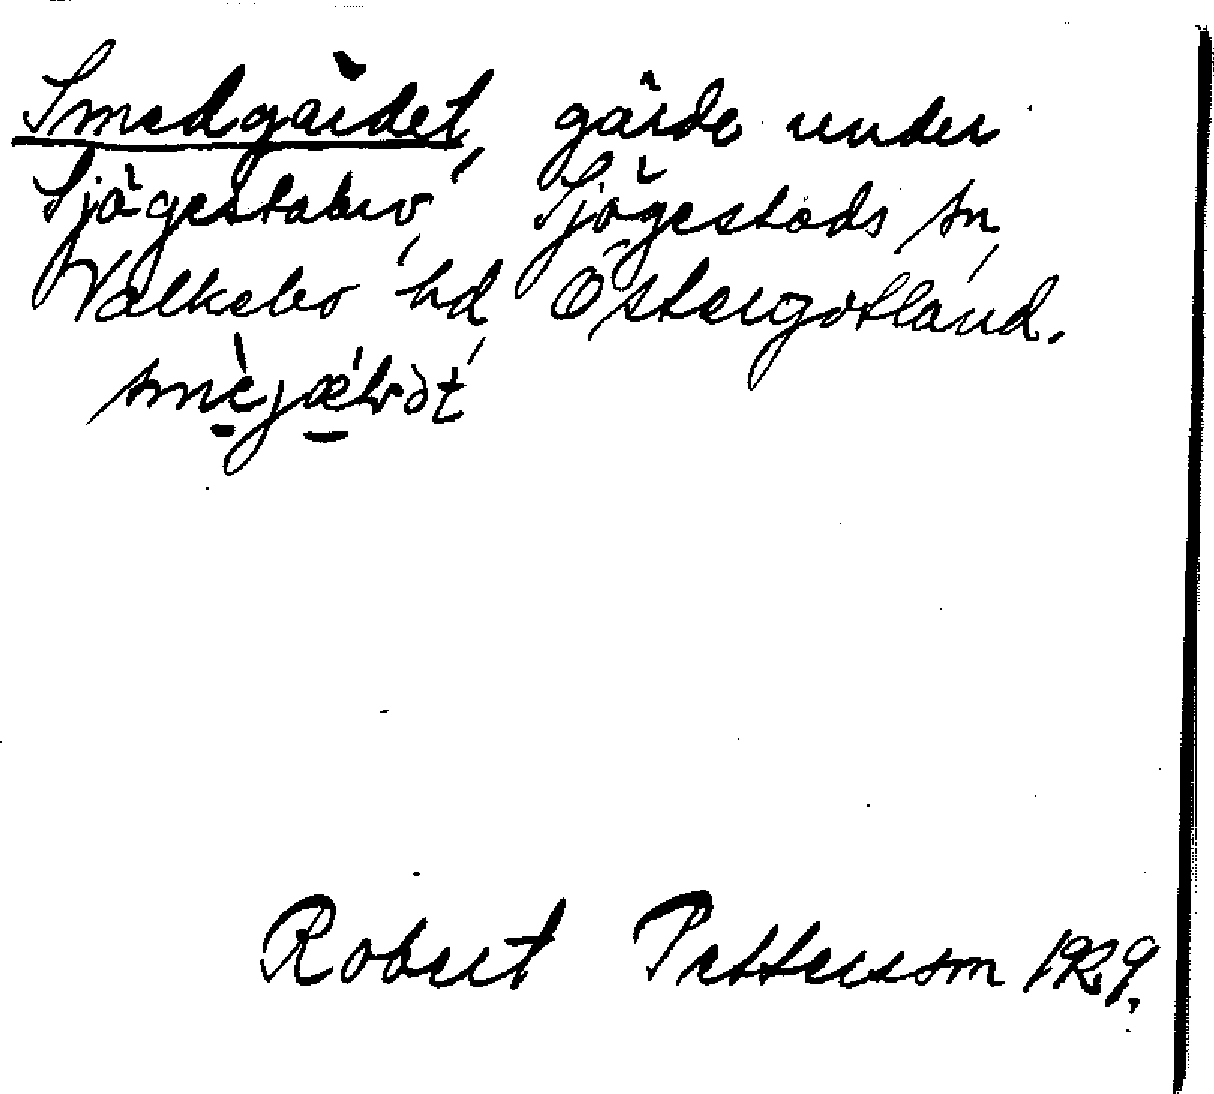 Smedgärdet, gärde under
Sjögestabro, Sjögestads sn,
Valkebo hd, Östergötland.
Robert Petterson 1929.